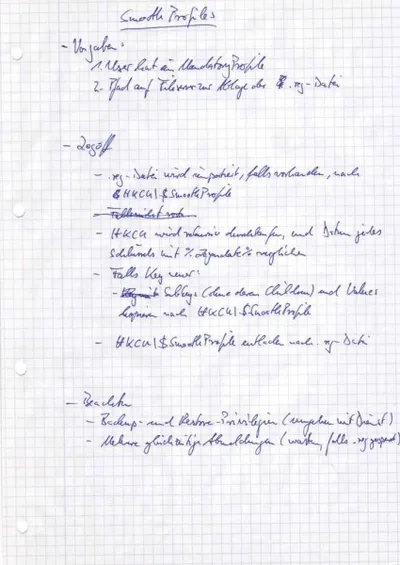 Smooth Profiles
- Vorgaben:
1. User hat ein Mandatory Profile
2. Pfad auf Fileserver zur Ablage der .reg-Datei
- Logoff
- .reg-Datei wird importiert, falls vorhanden, nach
HKCU\$SmoothProfile
- Falls nicht
- HKCU wird rekursiv durchlaufen, und Datum jedes
Schlüssels mit %Legendate% verglichen
- Falls Key neuer:
- Subkeys (ohne deren Children) und Values
kopieren nach HKCU\$SmoothProfile
- HKCU\$SmoothProfile entladen nach .reg-Datei
- Beachten
- Backup- und Restore-Privilegien (umgehen mit Dienst)
- Mehrere gleichzeitige Abmeldungen (warten, falls .reg gesperrt)